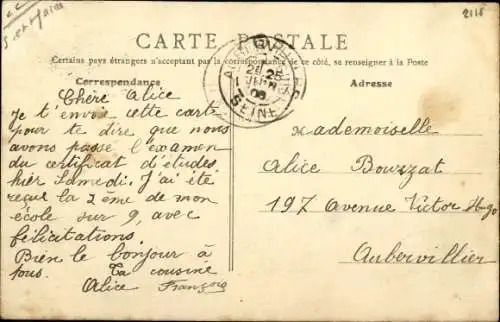 S. et Marne
2118
CARTE POSTALE
Certains pays étrangers n'acceptant pas la correspondance de ce côté, se renseigner à la Poste
Correspondance
Adresse
Chère Alice
Je t'envoie cette carte
pour te dire que nous
avons passé l'examen
du certificat d'études,
hier Samedi. J'ai été
reçue la 2ème de mon
école sur 9, avec
félicitations.
Bien le bonjour à
tous. Ta cousine
Alice François
SEINE
Mademoiselle
Alice Bouzzat
197 Avenue Victor Hugo
Aubervillier